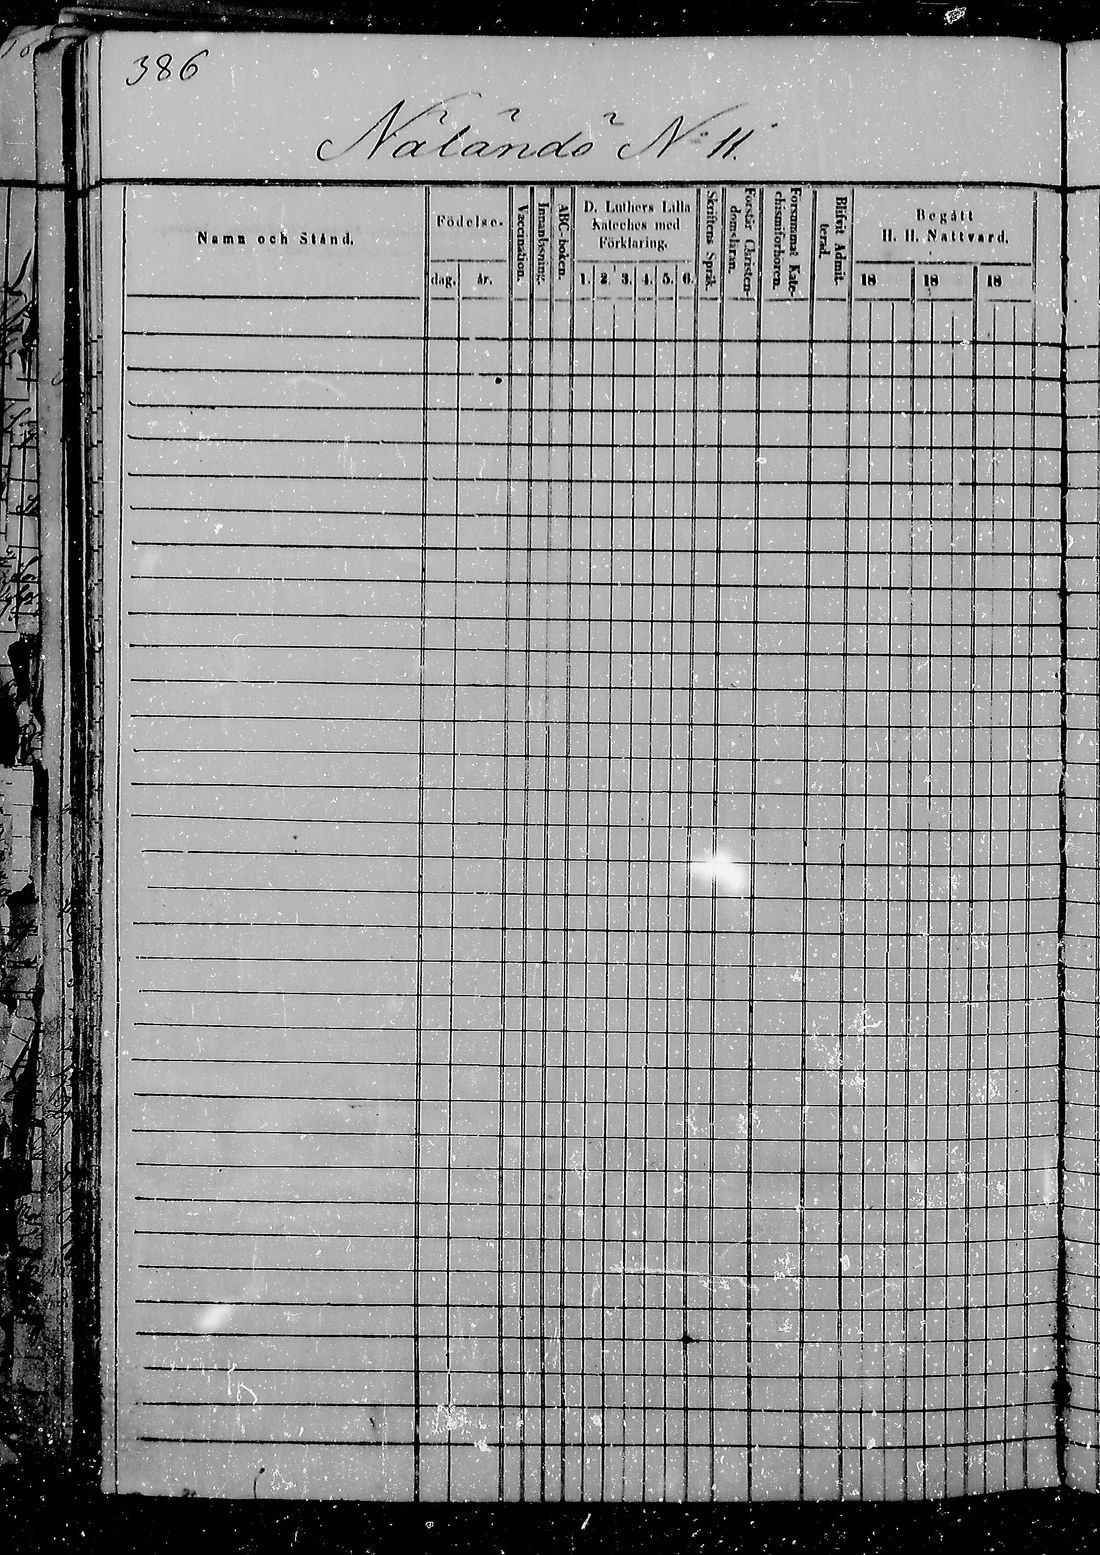 386
Nåländö No 11.
Namn och Stånd.
Födelse-
dag.
år.
Vaccination.
Innanläsning.
ABC-boken.
D. Luthers Lilla
Kateches med
Förklaring.
1. 2. 3. 4. 5. 6.
Skriftens Språk.
Förstår Christen-
domsläran.
Försummat Kate-
chismiförhören.
Blifvit Admit-
terad.
Begått
H. H. Nattvard.
18 18 18